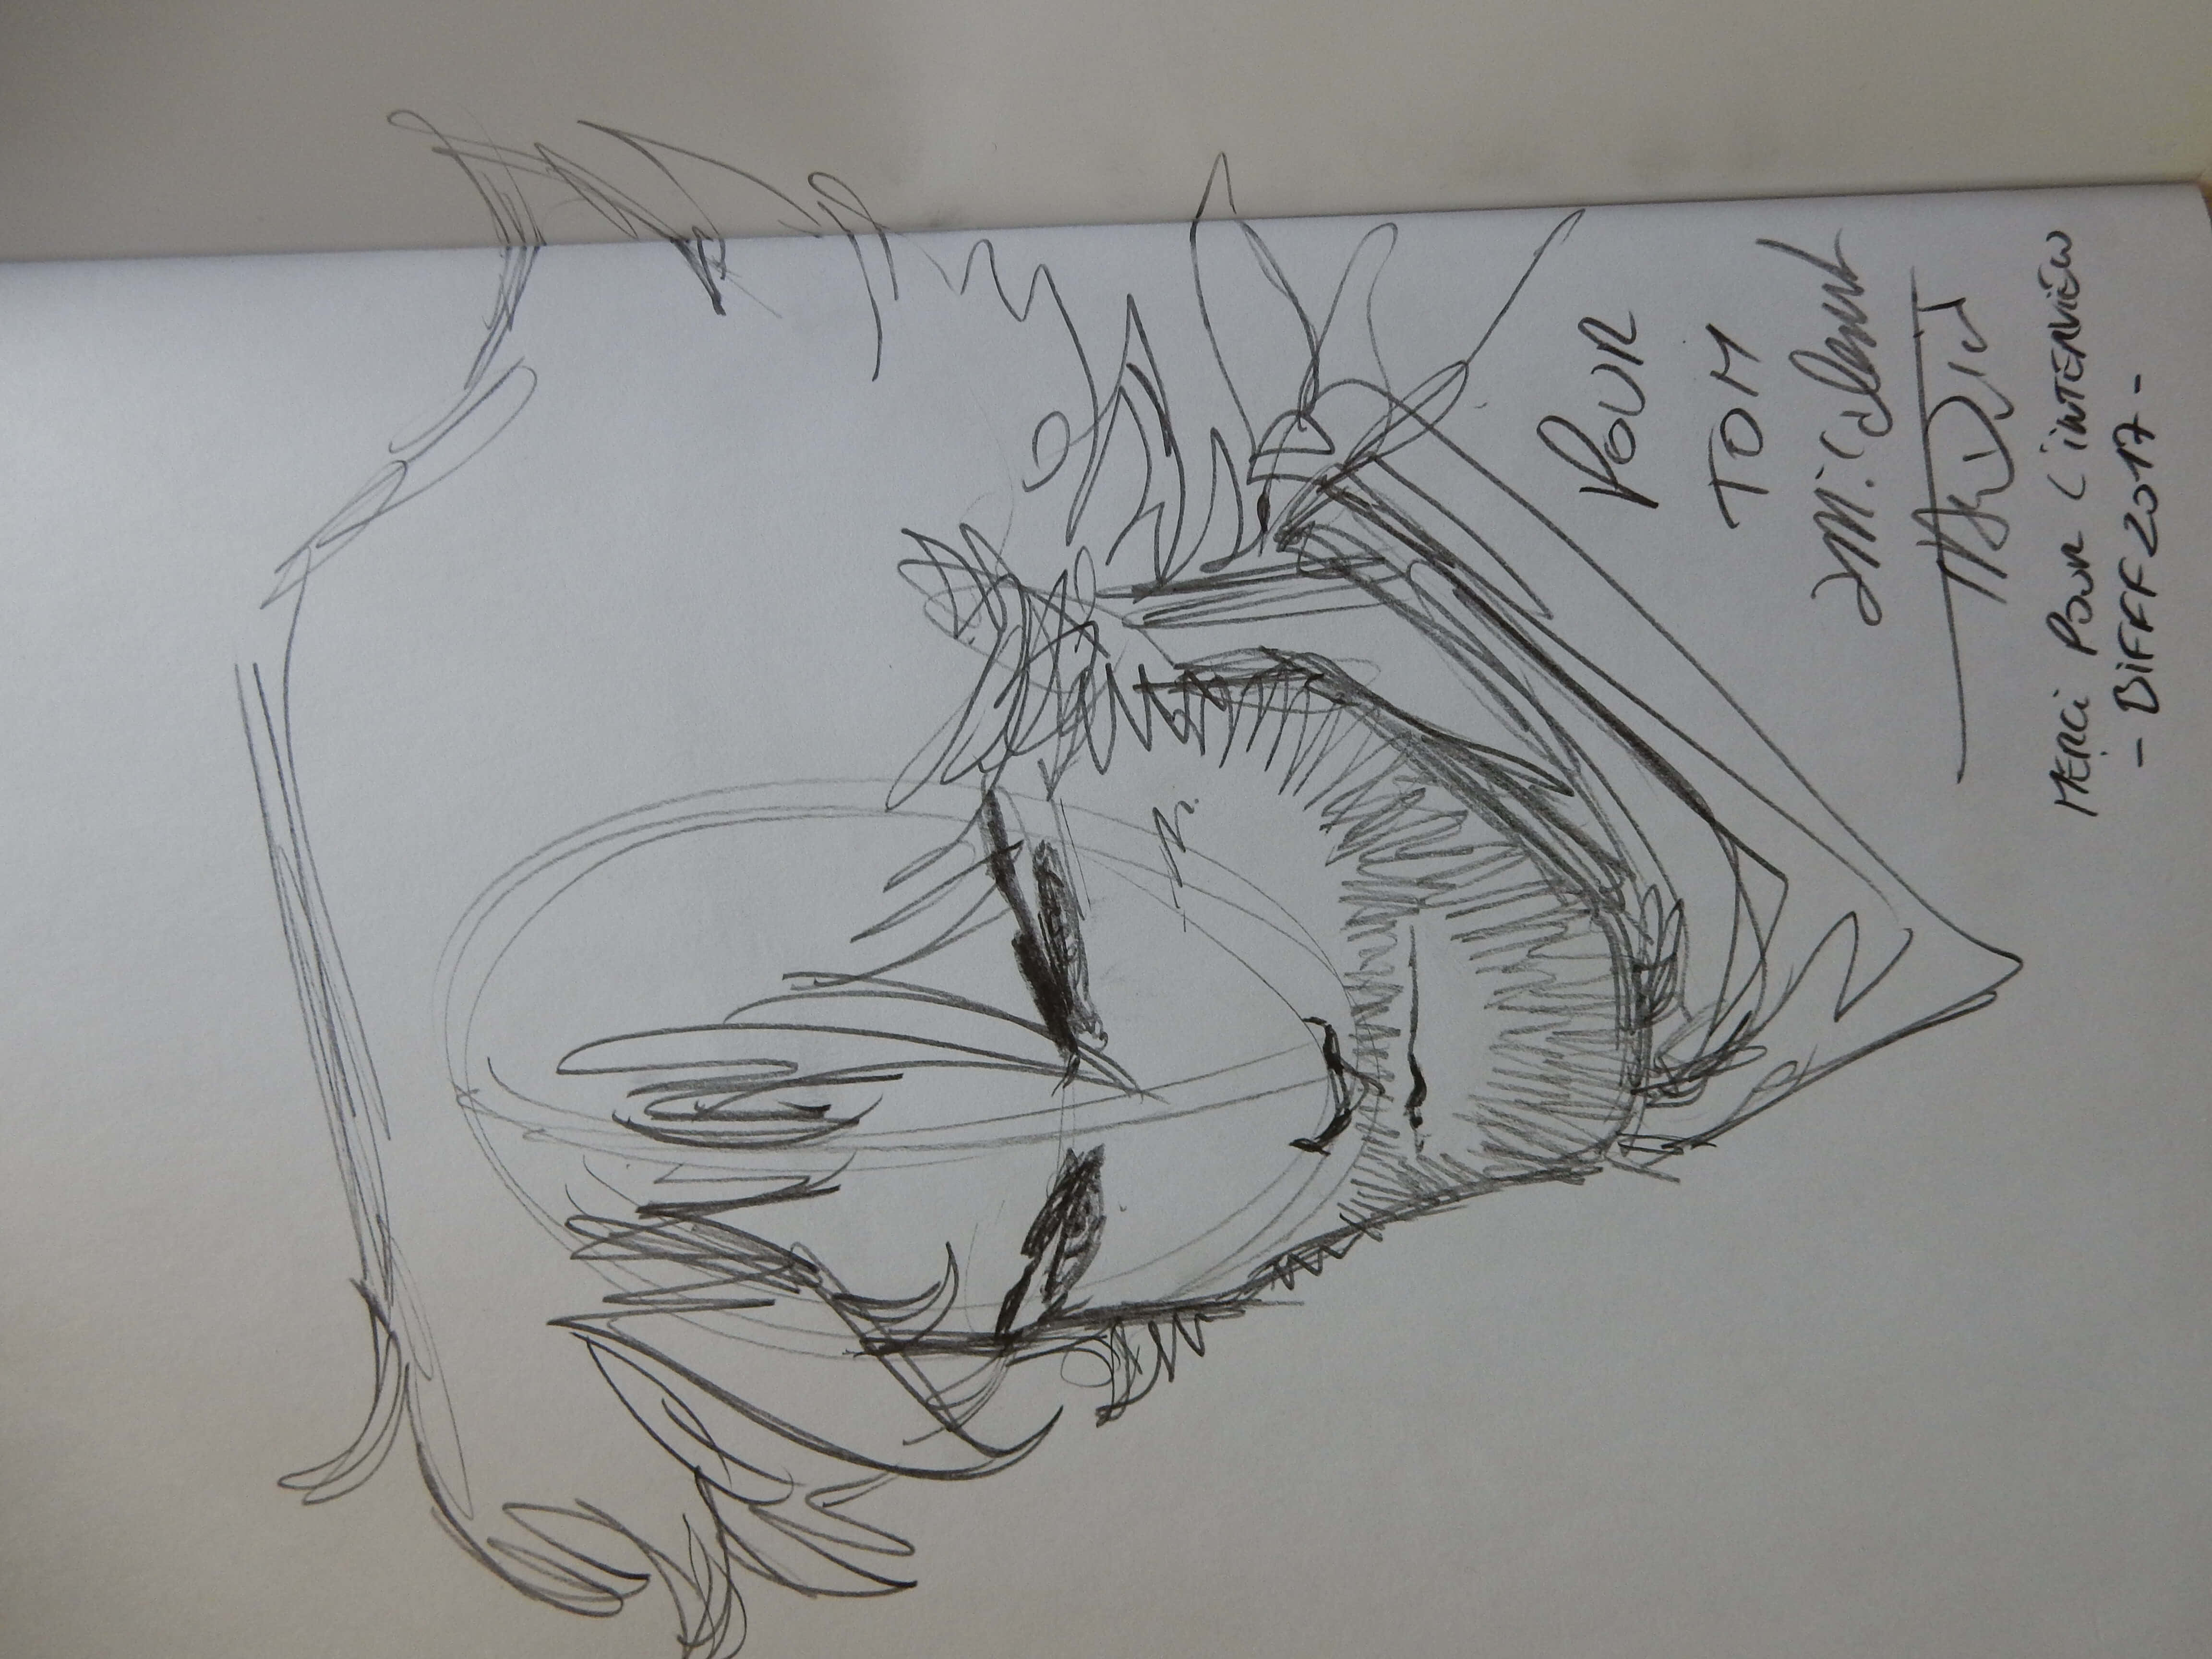 POUR
TOM
amicalement
MERCi POUR L'iNTERViEW
- BiFFF 2017 -